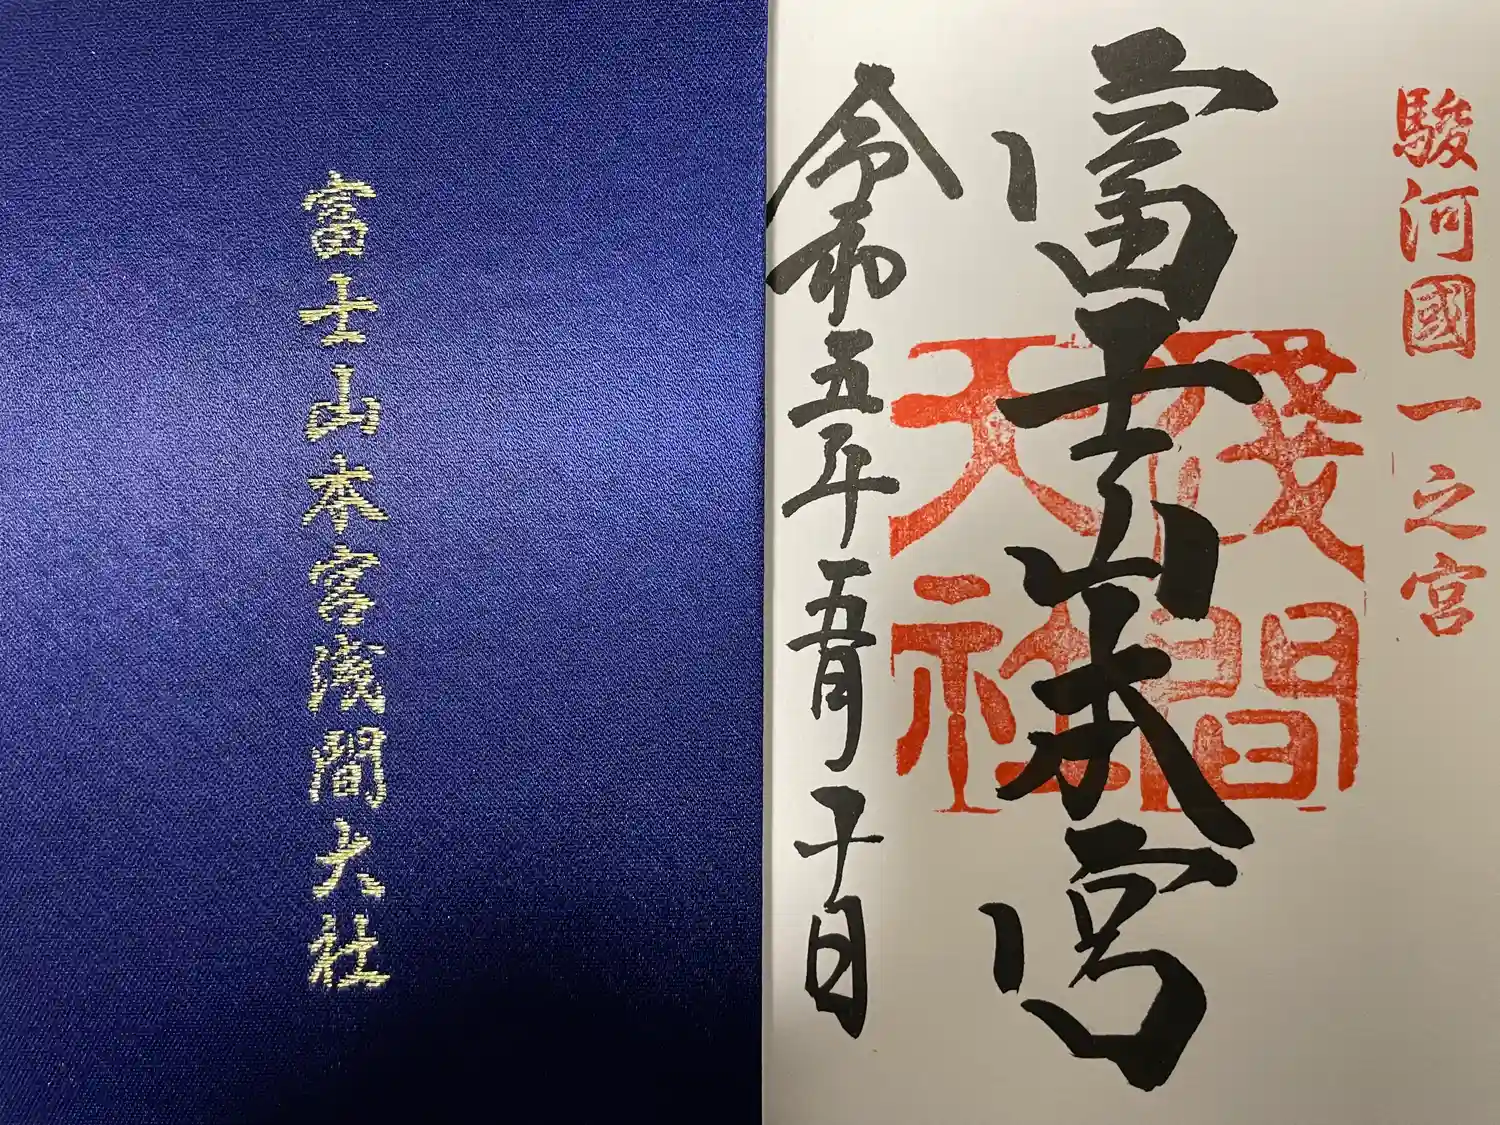 富士山本宮浅間大社
駿河國一之宮
富士山本宮
淺間
大社
令和五年五月十日